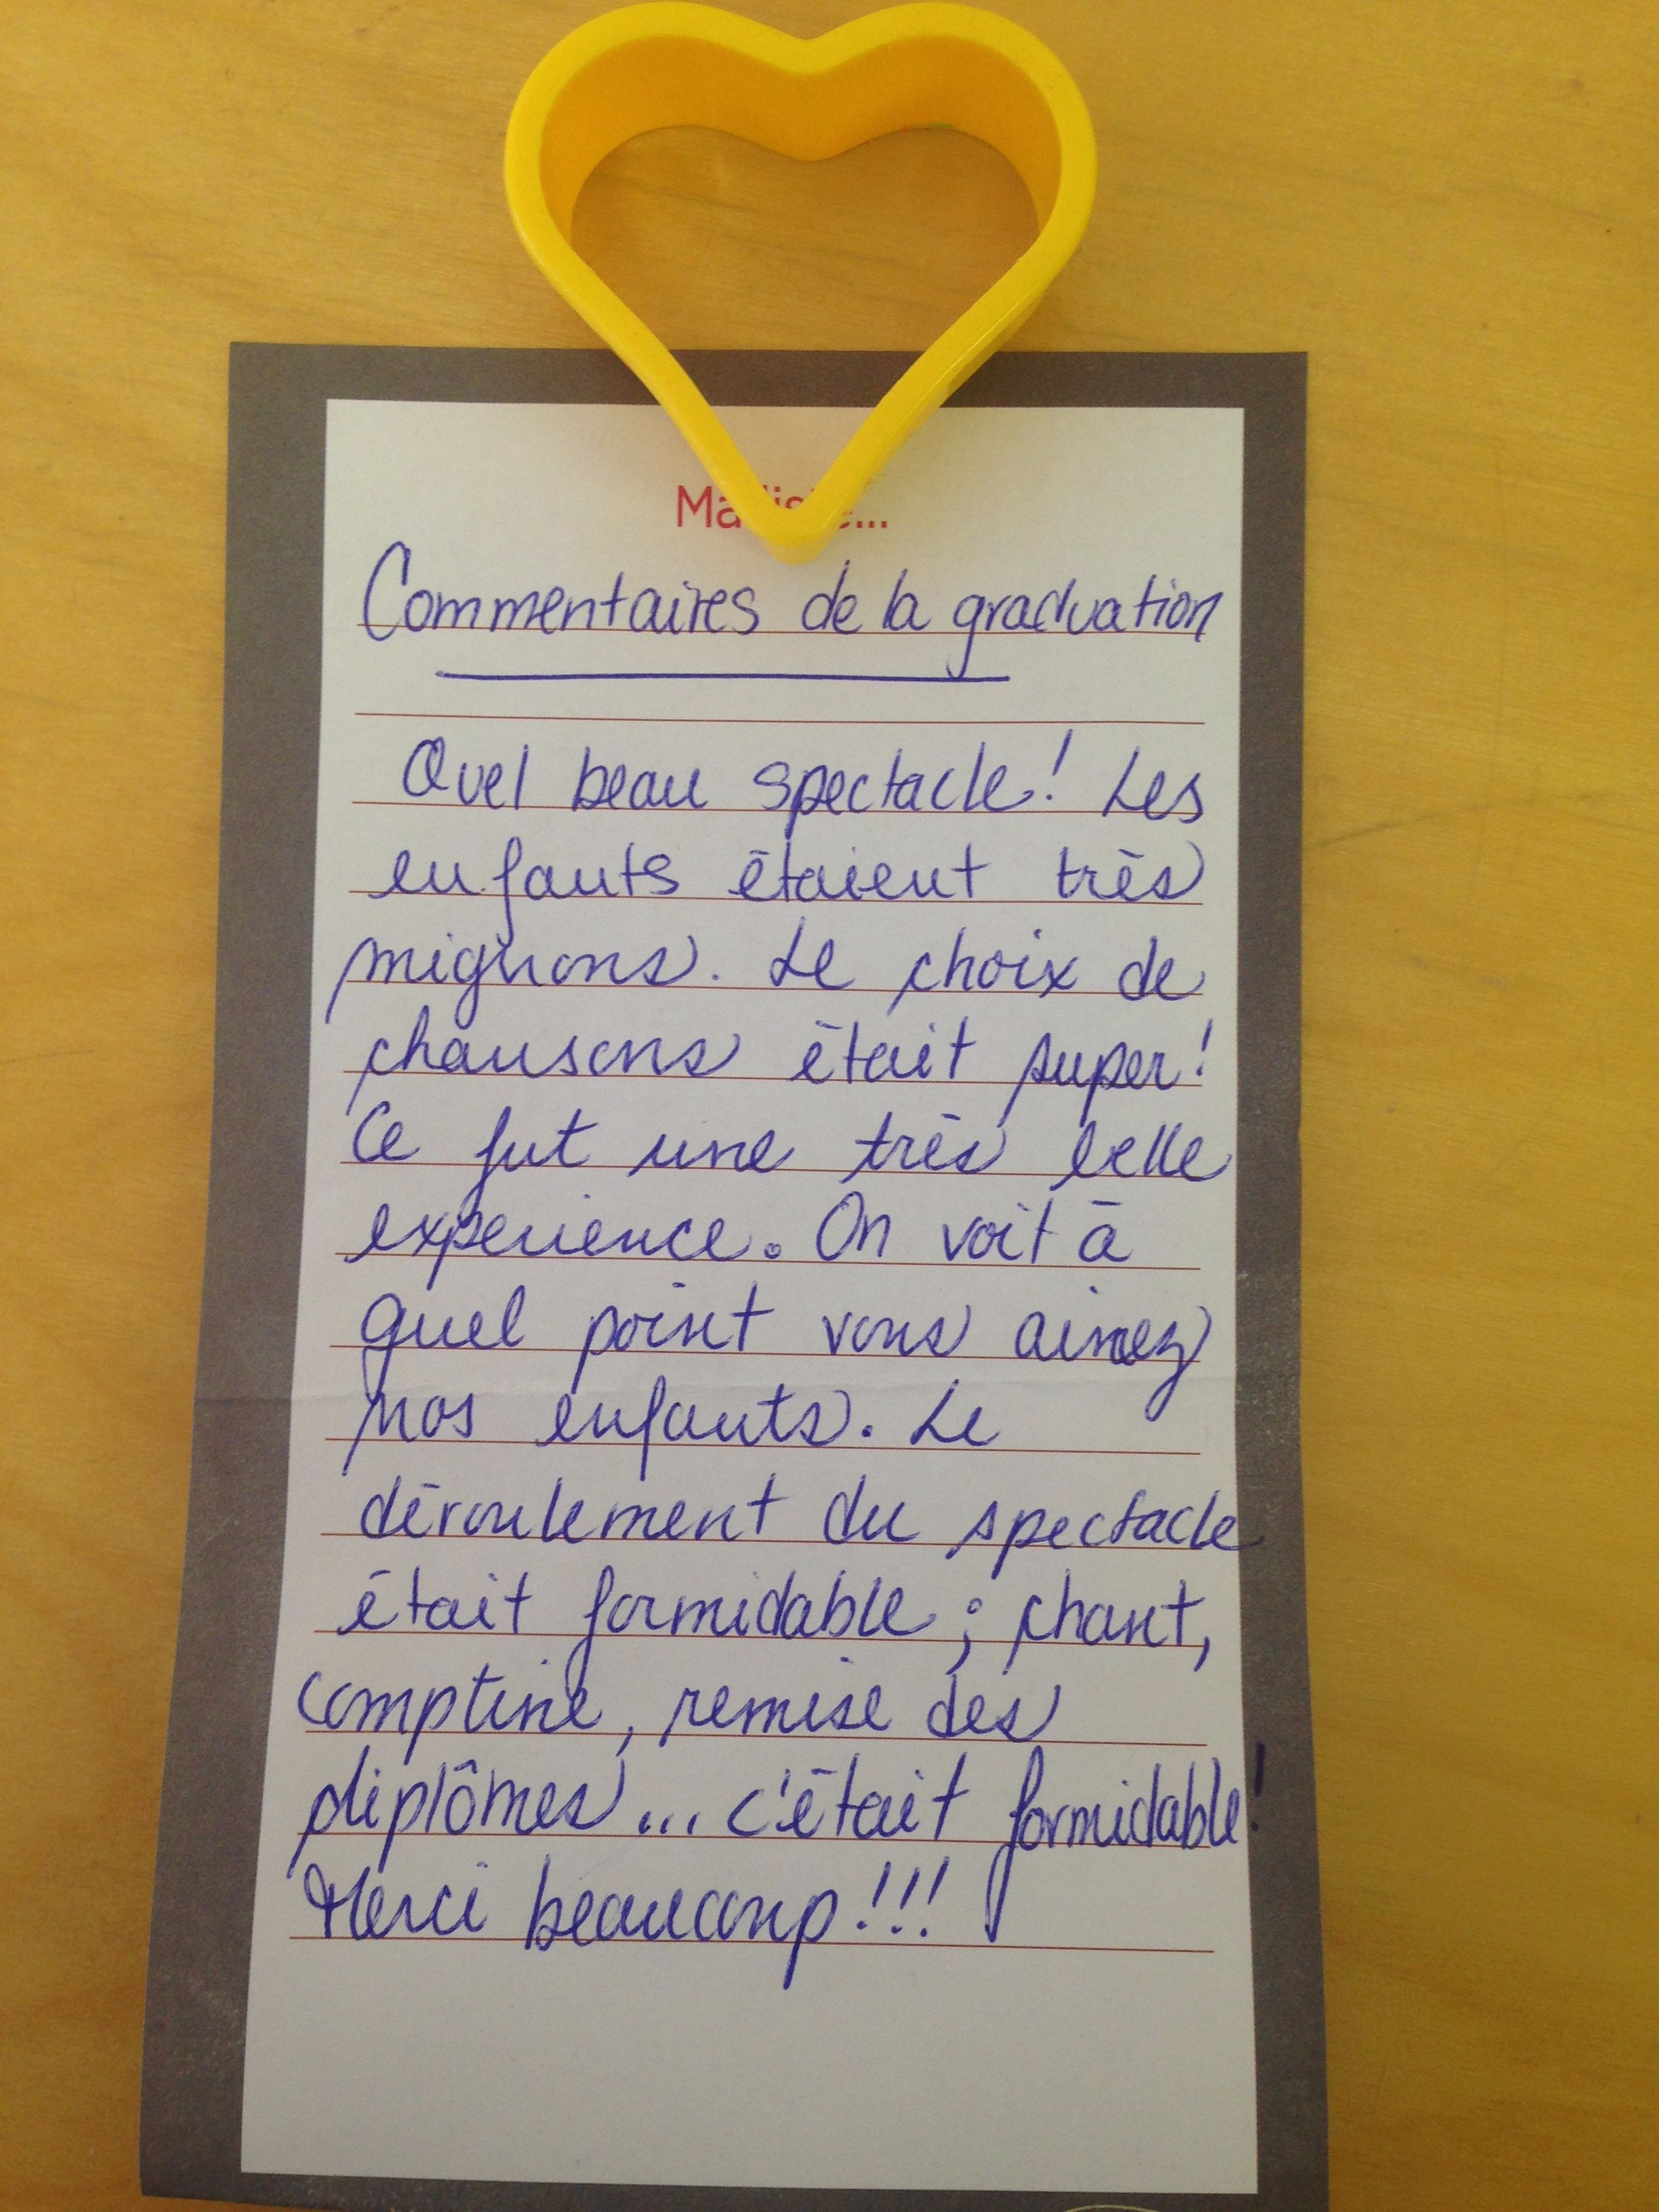 Ma liste...
Commentaires de la graduation
Quel beau spectacle! Les
enfants étaient très
mignons. Le choix de
chansons était super!
Ce fut une très belle
experience. On voit à
quel point vous aimez
nos enfants. Le
déroulement du spectacle
était formidable; chant,
comptine, remise des
diplômes... c'était formidable!
Merci beaucoup!!!